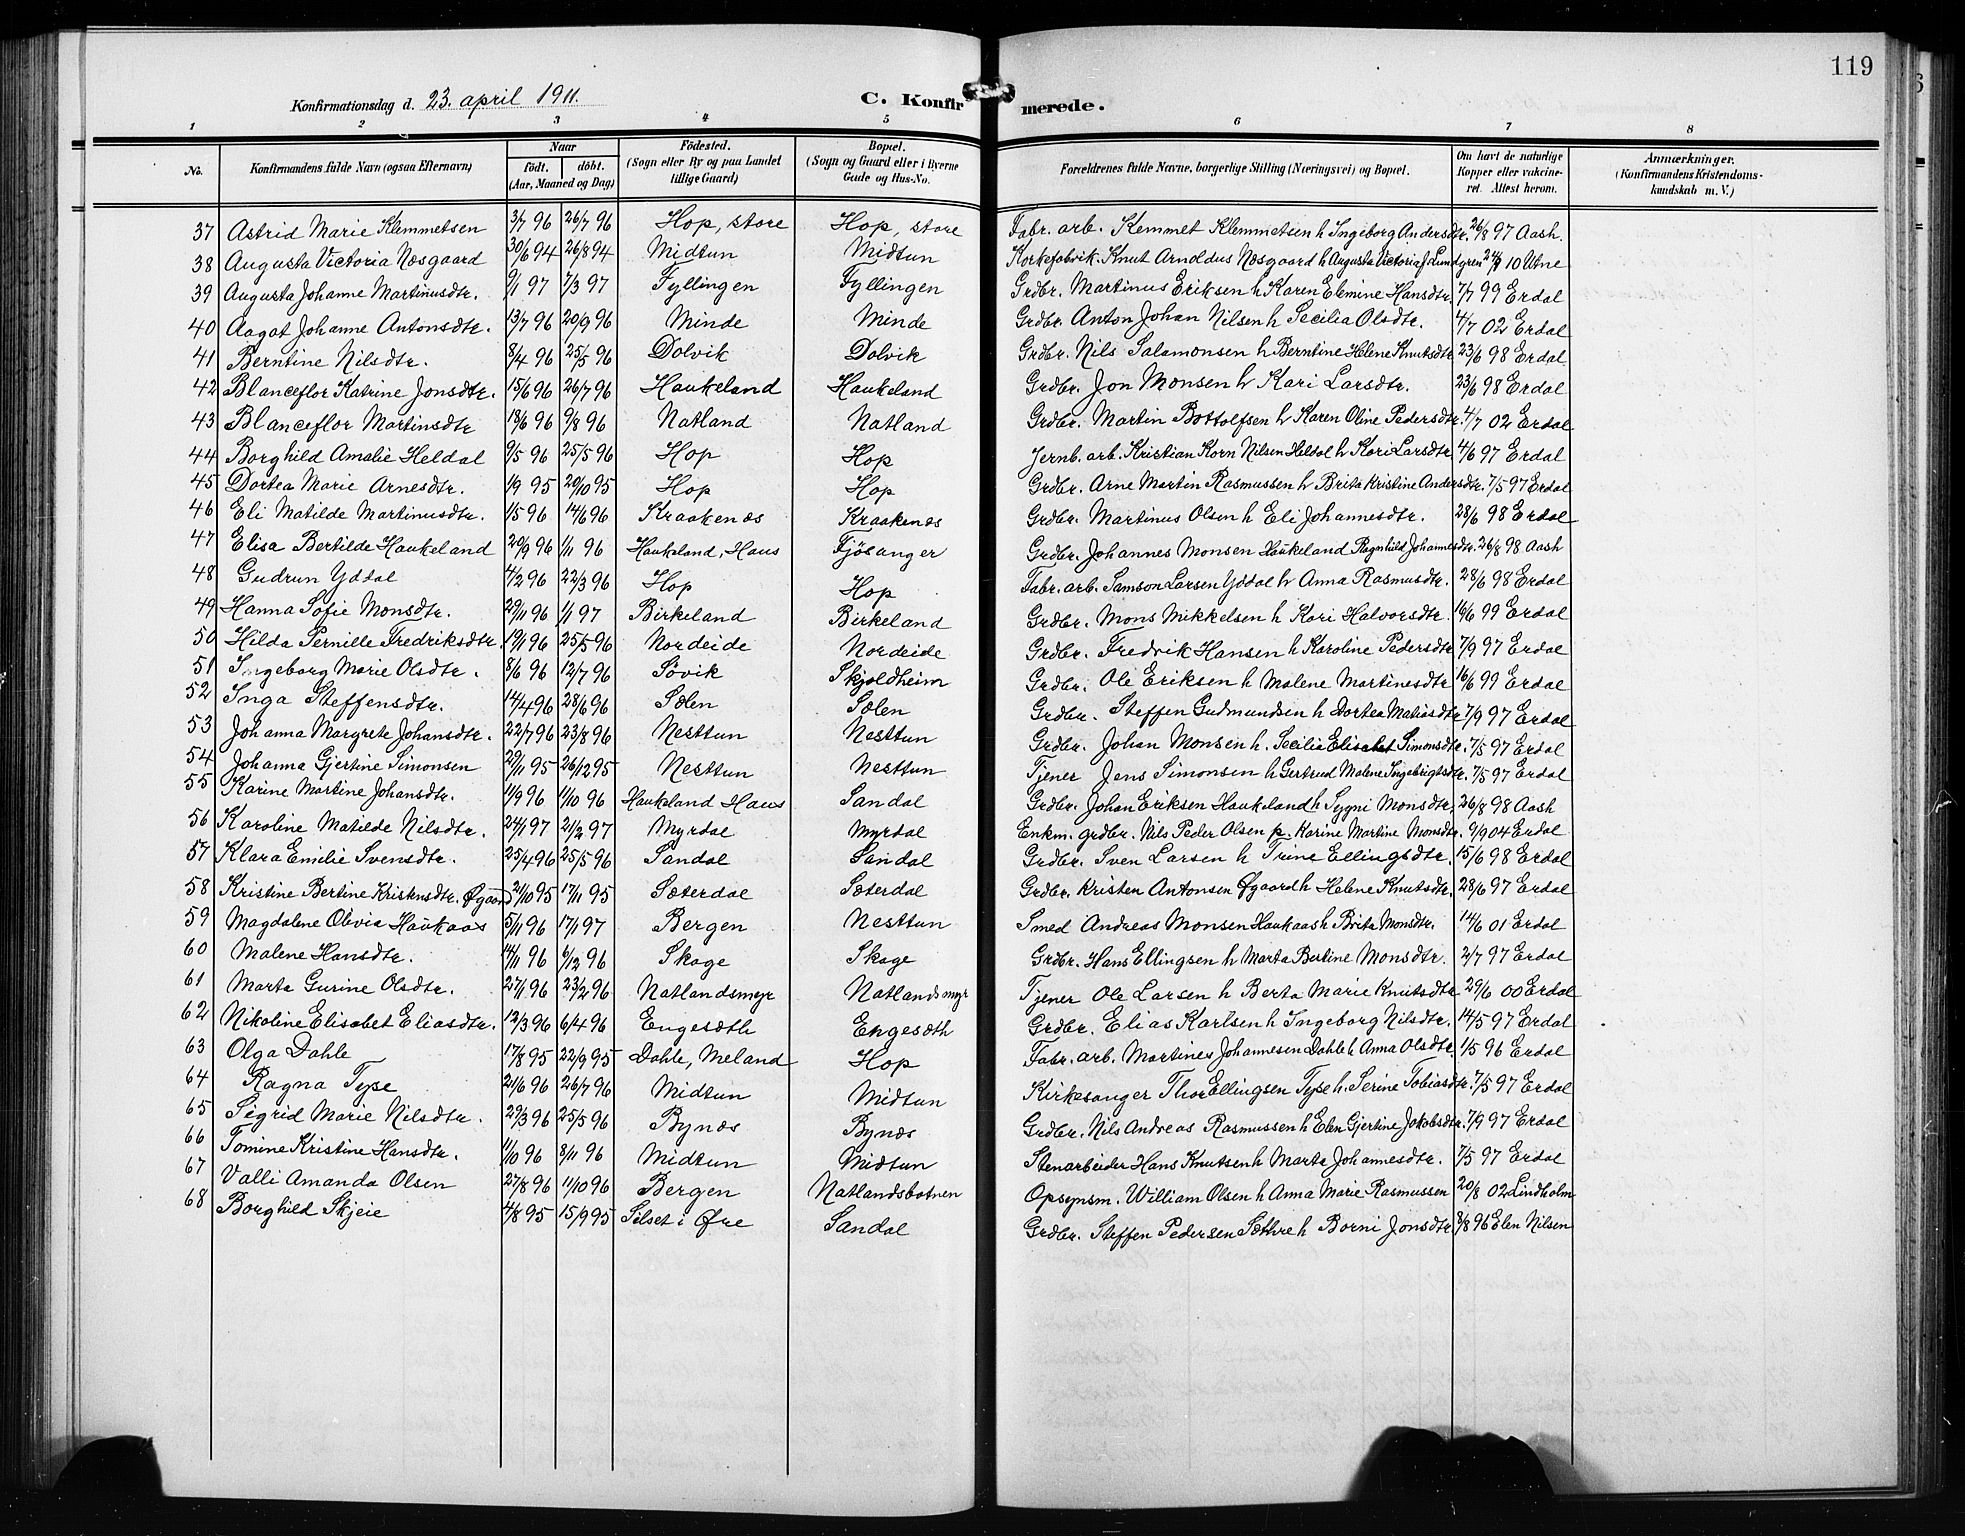 119
Konfirmationsdag d. 23. april 1911.
C. Konfirmerede.
1 2 3 4 5 6 7 8
No. Konfirmandens fulde Navn (ogsaa Efternavn) Naar födt. döbt. (Aar, Maaned og Dag) Födested. (Sogn eller By og paa Landet tillige Gaard) Bopæl. (Sogn og Gaard eller i Byerne Gade og Hus-No. Forældrenes fulde Navne, borgerlige Stilling (Næringsvei) og Bopæl. Om havt de naturlige Kopper eller vakcineret. Attest herom. Anmærkninger. (Konfirmandens Kristendomskundskab m. V.)
37 Astrid Marie Klemmetsen 3/7 96 26/7 96 Hop, store Hop, store Fabr. arb. Kemmet Klemmetsen h Ingeborg Andersdtr. 26/8 97 Aash.
38 Augusta Victoria Næsgaard 30/6 94 26/8 94 Midtun Midtun Korkefabrik. Knut Arnoldus Næsgaard h Augusta Victoria J Lundgren 10 Utne
39 Augusta Johanne Martinusdtr. 9/1 97 7/3 97 Fyllingen Fyllingen Grdbr. Martinus Eriksen h Karen Elemine Hansdtr. 7/7 99 Erdal
40 Aagot Johanne Antonsdtr. 13/7 96 20/9 96 Minde Minde Grdbr. Anton Johan Nilsen h Secilia Olsdtr. 4/7 02 Erdal
41 Berntine Nilsdtr. 8/4 96 25/5 96 Dolvik Dolvik Grdbr. Nils Salamonsen h Berntine Helene Knutsdtr 23/6 98 Erdal
42 Blanceflor Katrine Jonsdtr. 15/6 96 26/7 96 Haukeland Haukeland Grdbr. Jon Monsen h Kari Larsdtr. 23/6 98 Erdal
43 Blanceflor Martinsdtr 18/6 96 9/8 96 Natland Natland Grdbr. Martin Bottolfsen h Karen Oline Pedersdtr. 4/7 02 Erdal
44 Borghild Amalie Heldal 9/5 96 25/5 96 Hop Hop Jernb. arb. Kristian Korn Nilsen Heldal h Kari Larsdtr 4/6 97 Erdal
45 Dortea Marie Arnesdtr. 1/9 95 20/10 95 Hop Hop Grdbr. Arne Martin Rasmussen h Brita Kristine Andersdtr. 7/5 97 Erdal
46 Eli Matilde Martinusdtr. 1/5 96 14/6 96 Kraakenæs Kraakenæs Grdbr. Martinus Olsen h Eli Johannesdtr. 28/6 98 Erdal
47 Elisa Bertilde Haukeland 20/9 96 1/11 96 Haukeland, Haus Fjösanger Grdbr. Johannes Monsen Haukeland Ragnhild Johannesdtr. 26/8 98 Aash
48 Gudrun Yddal 4/2 96 22/3 96 Hop Hop Fabr. arb. Samson Larsen Yddal h Anna Rasmusdtr. 28/6 98 Erdal
49 Hanna Sofie Monsdtr. 29/11 96 1/1 97 Birkeland Birkeland Grdbr. Mons Mikkelsen h Kari Halvorsdtr. 16/6 99 Erdal
50 Hilda Pernille Fredriksdtr. 19/1 96 25/5 96 Nordeide Nordeide Grdbr. Fredrik Hansen h Karoline Pedersdtr 7/9 97 Erdal
51 Ingeborg Marie Olsdtr. 8/6 96 12/7 96 Sövik Skjoldheim Grdbr. Ole Eriksen h Malene Martinesdtr 16/6 99 Erdal
52 Inga Steffensdtr. 14/4 96 28/6 96 Sælen Sælen Grdbr. Steffen Gudmundsen h Dortea Matiasdtr 7/9 97 Erdal
53 Johanna Margrete Johansdtr. 22/7 96 23/8 96 Nesttun Nesttun Grdbr. Johan Monsen h. Secilia Elisabet Simonsdtr. 7/5 97 Erdal
54 Johanna Gjertine Simonsen 29/11 95 26/12 95 Nesttun Nesttun Tjener Jens Simonsen h Gertrud Malene Ingebrigtsdtr. 7/5 97 Erdal
55 Karine Martine Johansdtr. 11/9 96 11/10 96 Haukeland Haus Sandal Grdbr. Johan Eriksen Haukeland h Sygni Monsdtr. 26/8 98 Aash
56 Karoline Matilde Nilsdtr. 24/1 97 21/2 97 Myrdal Myrdal Enkm. grdbr. Nils Peder Olsen p. Karine Martine Monsdtr. 9/9 04 Erdal
57 Klara Emilie Svensdtr. 25/4 96 25/5 96 Sandal Sandal Grdbr. Sven Larsen h Trine Ellingsdtr. 15/6 98 Erdal
58 Kristine Bertine Kristensdtr. Øgaard 21/10 95 17/11 95 Sæterdal Sæterdal Grdbr. Kristen Antonsen Øgaard h Helene Knutsdtr. 28/6 97 Erdal
59 Magdalene Olivia Haukaas 5/11 96 17/1 97 Bergen Nesttun Smed Andreas Monsen Haukaas h Brita Monsdtr. 14/6 01 Erdal
60 Malene Hansdtr. 14/11 96 6/12 96 Skage Skage Grdbr. Hans Ellingsen h Marta Bertine Monsdtr. 2/7 97 Erdal
61 Marta Gurine Olsdtr. 27/1 96 23/2 96 Natlandsmyr Natlandsmyr Tjener Ole Larsen h Berta Marie Knutsdtr 29/6 00 Erdal
62 Nikoline Elisabet Eliasdtr. 13/3 96 6/4 96 Engesæth Engesæth Grdbr. Elias Karlsen h Ingeborg Nilsdtr. 14/5 97 Erdal
63 Olga Dahle 17/8 95 22/9 95 Dahle, Meland Hop Fabr. arb. Martines Johannesen Dahle h Anna Olsdtr 1/5 96 Erdal
64 Ragna Tyse 21/6 96 26/7 96 Midtun Midtun Kirkesanger Thor Ellingsen Tyse h. Serine Tobiasdtr. 7/5 97 Erdal
65 Sigrid Marie Nilsdtr. 29/3 96 25/5 96 Bynæs Bynæs Grdbr. Nils Andreas Rasmussen h Elen Gjertine Jakobsdtr. 7/9 97 Erdal
66 Tomine Kristine Hansdtr. 1/10 96 8/11 96 Midtun Midtun Stenarbeider Hans Knutsen h Marta Johannesdtr. 7/5 97 Erdal
67 Valli Amanda Olsen 27/8 96 11/10 96 Bergen Natlandsbotnen Opsynsm. William Olsen h Anna Marie Rasmussen 20/8 02 Lindholm
68 Borghild Skjeie 4/8 95 15/9 95 Silset i Øre Sandal Grdbr. Steffen Pedersen Sæthre h Borni Jonsdtr. 8/8 96 Elen Nilsen